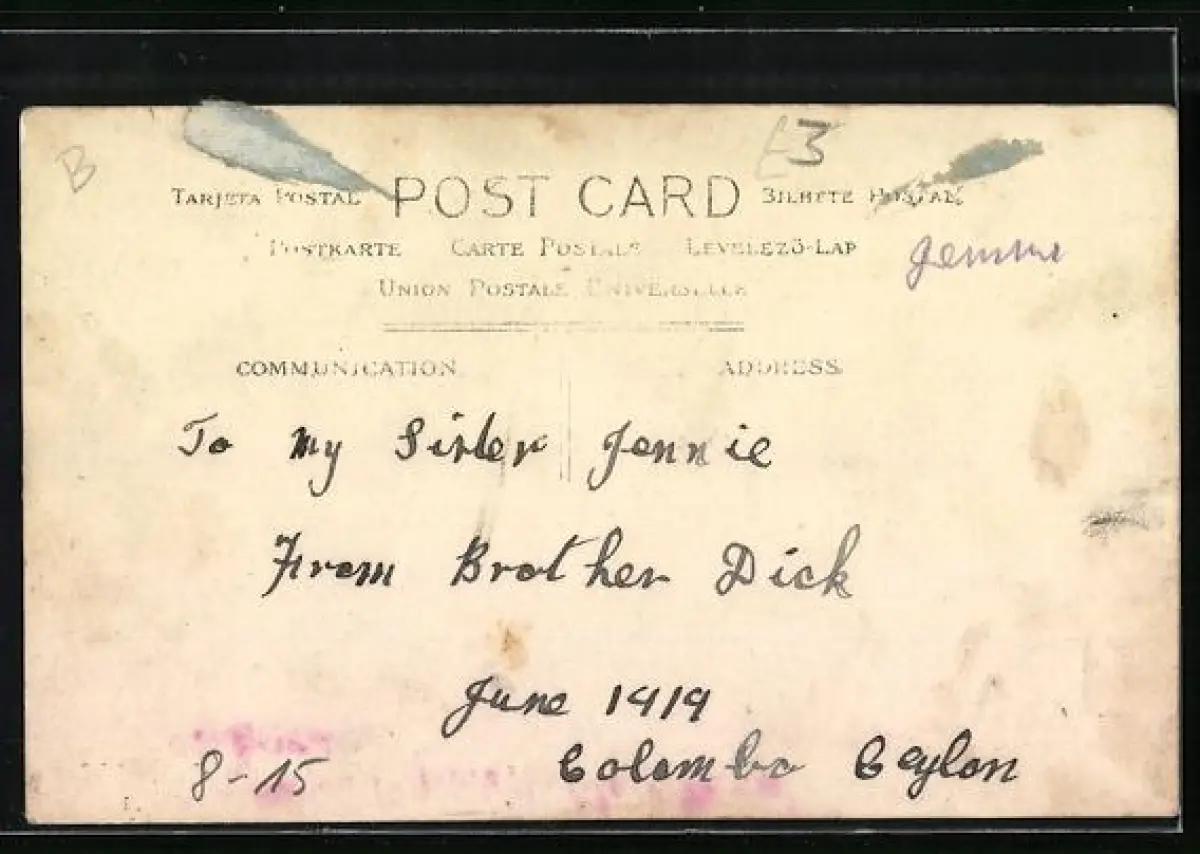 B
£3
TARJETA POSTAL POST CARD BILHETE POSTAL
POSTKARTE CARTE POSTALE LEVELEZŐ-LAP
UNION POSTALE UNIVERSELLE
COMMUNICATION ADDRESS
To My Sister Jennie
From Brother Dick
June 1919
8-15 Colombo Ceylon